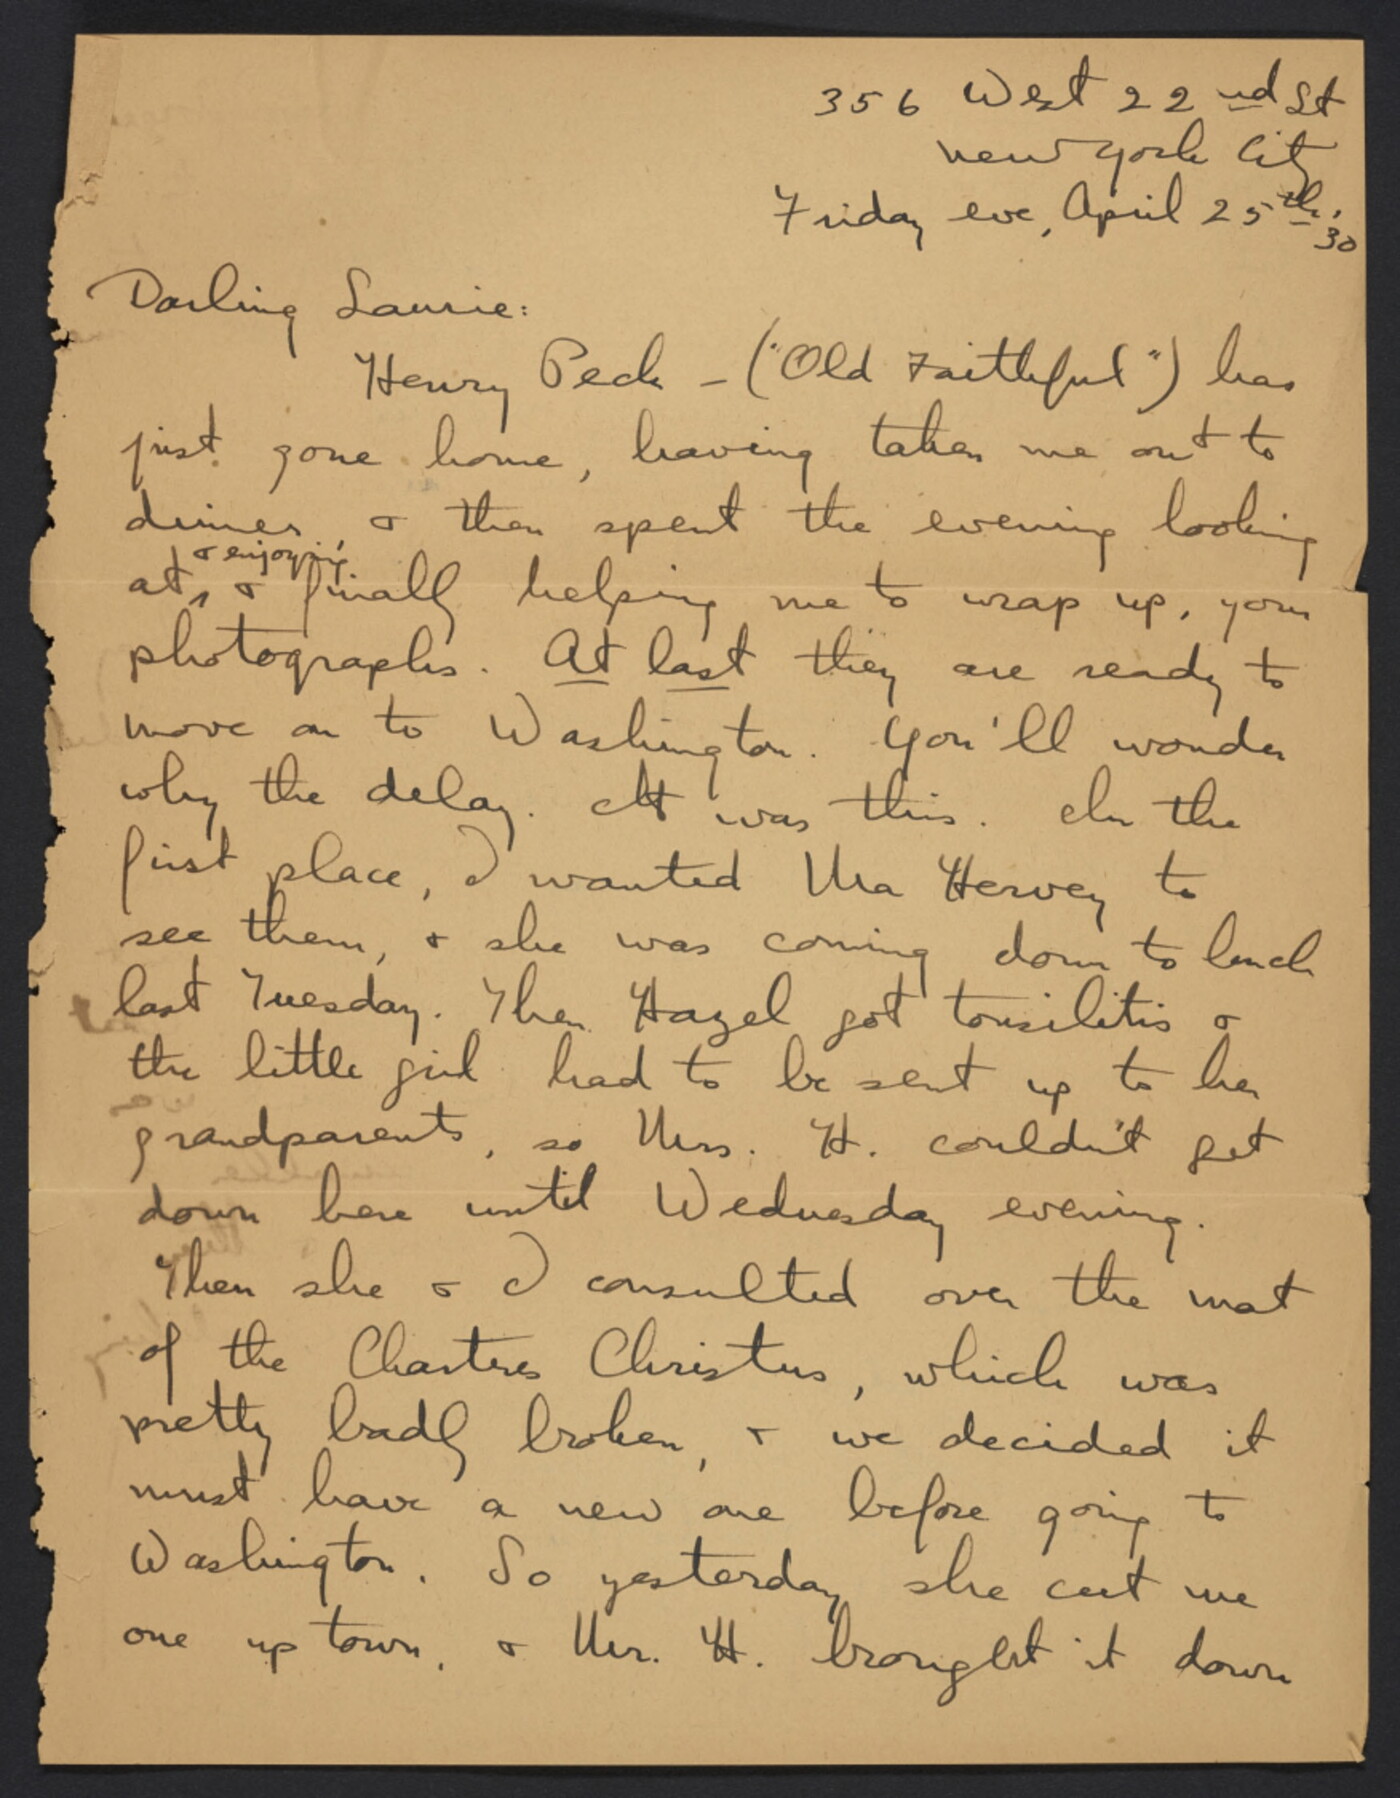 356 West 22nd St
New York City
Friday eve, April 25th, 30
Darling Laurie:
Henry Peck – ("Old Faithful") has
just gone home, having taken me out to
dinner, & then spent the evening looking
& enjoying,
at, & finally helping me to wrap up, your
photographs. At last they are ready to
move on to Washington. You'll wonder
why the delay. It was this. In the
first place, I wanted Ma Hervey to
see them, & she was coming down to lunch
last Tuesday. Then Hazel got tonsilitis &
the little girl had to be sent up to her
grandparents, so Mrs. H. couldn't get
down here until Wednesday evening.
Then she & I consulted over the mat
of the Chartres Christus, which was
pretty badly broken, & we decided it
must have a new one before going to
Washington. So yesterday she cut me
one up town, & Mr. H. brought it down